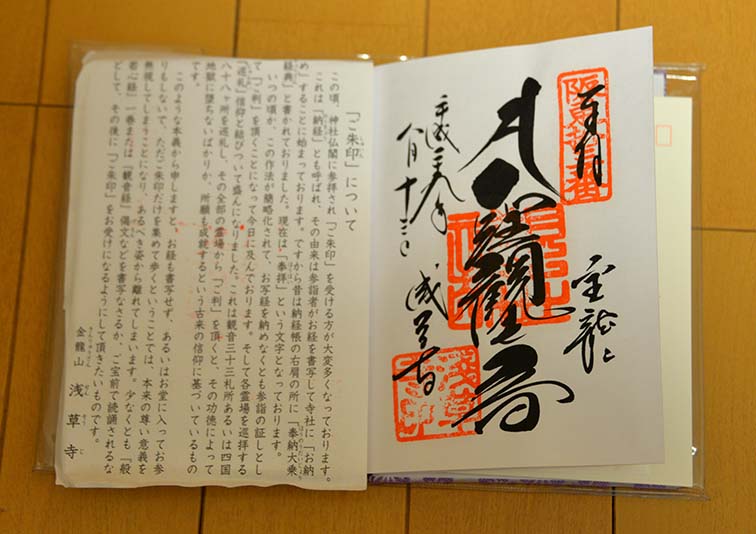 「ご朱印」について
この頃、神社仏閣に参拝され「ご朱印」を受ける方が大変多くなっております。
これは「納経」とも呼ばれ、その由来は参詣者がお経を書写して寺社に「お納
め」することに始まっております。ですから昔は納経帳の右肩の所に「奉納大乗
経典」と書かれておりました。現在は「奉拝」という文字となっております。
いつの頃か、この作法が簡略化されて、お写経を納めなくとも参詣の証しとし
て「ご判」を頂くことになって今日に及んでおります。そして各霊場を巡拝する
「巡礼」信仰と結びついて盛んになりました。これは観音三十三札所あるいは四国
八十八ヶ所を巡礼し、その全部の霊場から「ご判」を頂くと、その功徳によって
地獄に堕ちないばかりか、所願も成就するという古来の信仰に基づいているもの
です。
このような本義から申しますと、お経も書写せず、あるいはお堂に入ってお参
りもしないで、ただご朱印だけを集めて歩くということでは、本来の尊い意義を
無視してしまうことになり、あるべき姿から離れてしまいます。少なくとも「般
若心経」一巻または「観音経」偈文などを書写なさるか、ご宝前で読誦されるな
どして、その後に「ご朱印」をお受けになるようにして頂きたいものです。
金龍山 浅草寺
平成二十九年
八月十三日